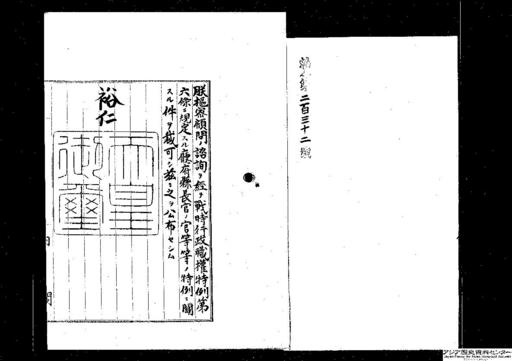 勅令第二百三十二號
朕樞密顧問ノ諮詢ヲ經テ戰時行政職權特例第
六條ニ規定スル廳府縣長官ノ官等等ノ特例ニ關
スル件ヲ裁可シ茲ニ之ヲ公布セシム
裕仁
天皇
御璽
月
アジア歴史資料センター
Japan Center for Asian Historical Records